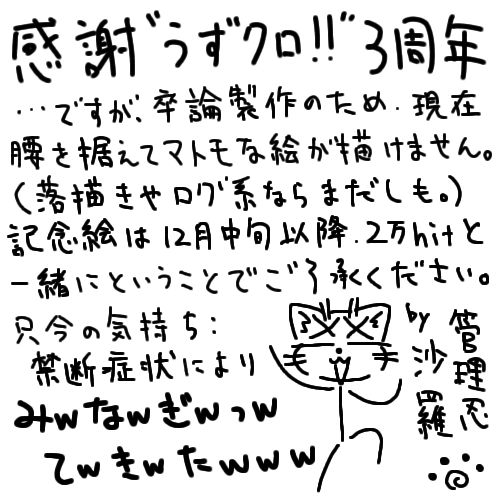 感謝"うずクロ!!"3周年
…ですが、卒論製作のため、現在
腰を据えてマトモな絵が描けません。
(落描きやログ系ならまだしも。)
記念絵は12月中旬以降、2万hitと
一緒にということでご了承ください。
只今の気持ち:
禁断症状により
みwなwぎwっw
てwきwたwww
by 管理忍
沙羅